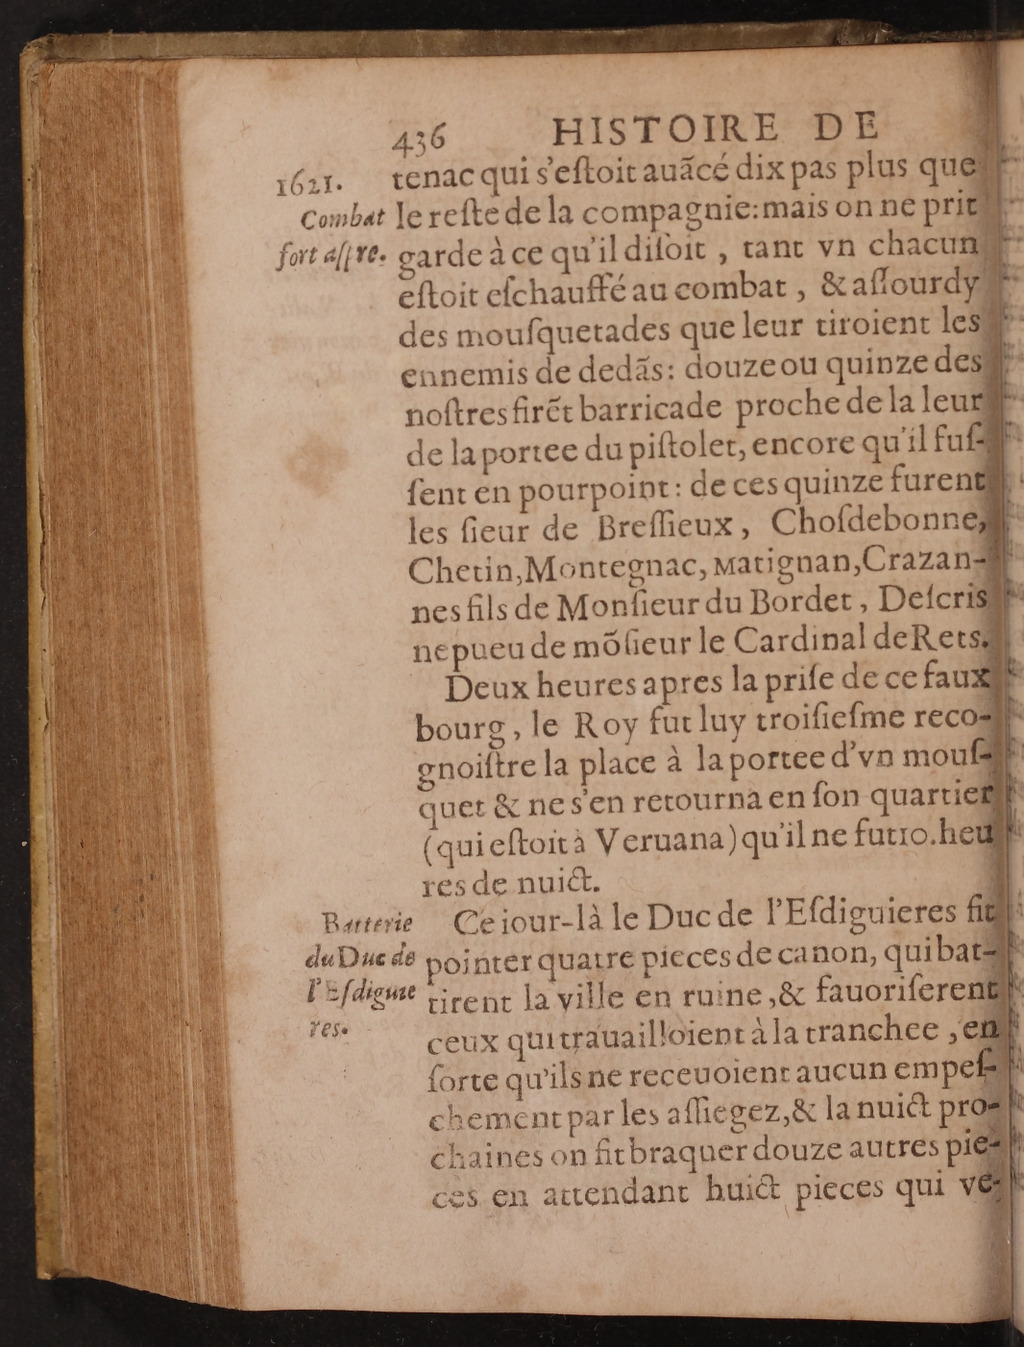 436 HISTOIRE DE
1621. tenac qui s'eſtoit auãcé dix pas plus que
Combat le reſte de la compagnie: mais on ne prit
fort aſpre. garde à ce qu'il diſoit, tant vn chacun
eſtoit eſchauffé au combat, & aſſourdy
des mouſquetades que leur tiroient les
ennemis de dedãs: douze ou quinze des
noſtres firẽt barricade proche de la leur
de la portee du piſtolet, encore qu'il fuſ-
ſent en pourpoint: de ces quinze furent
les ſieur de Breſſieux, Choſdebonne,
Chetin, Montegnac, Matignan, Crazan-
nes fils de Monſieur du Bordet, Deſcris
nepueu de mõſieur le Cardinal de Rets.
Deux heures apres la priſe de ce faux
bourg, le Roy fut luy troiſieſme reco-
gnoiſtre la place à la portee d'vn mouſ-
quet & ne s'en retourna en ſon quartier
(qui eſtoit à Veruana) qu'il ne fut 10. heu
res de nuict.
Batterie Ce iour-là le Duc de l'Eſdiguieres fit
du Duc de pointer quatre pieces de canon, qui bat-
l'Eſdiguie tirent la ville en ruine, & fauoriſerent
res. ceux qui trauailloient à la tranchee, en
ſorte qu'ils ne receuoient aucun empeſ-
chement par les aſſiegez, & la nuict pro-
chaines on fit braquer douze autres pie-
ces en attendant huict pieces qui ve-